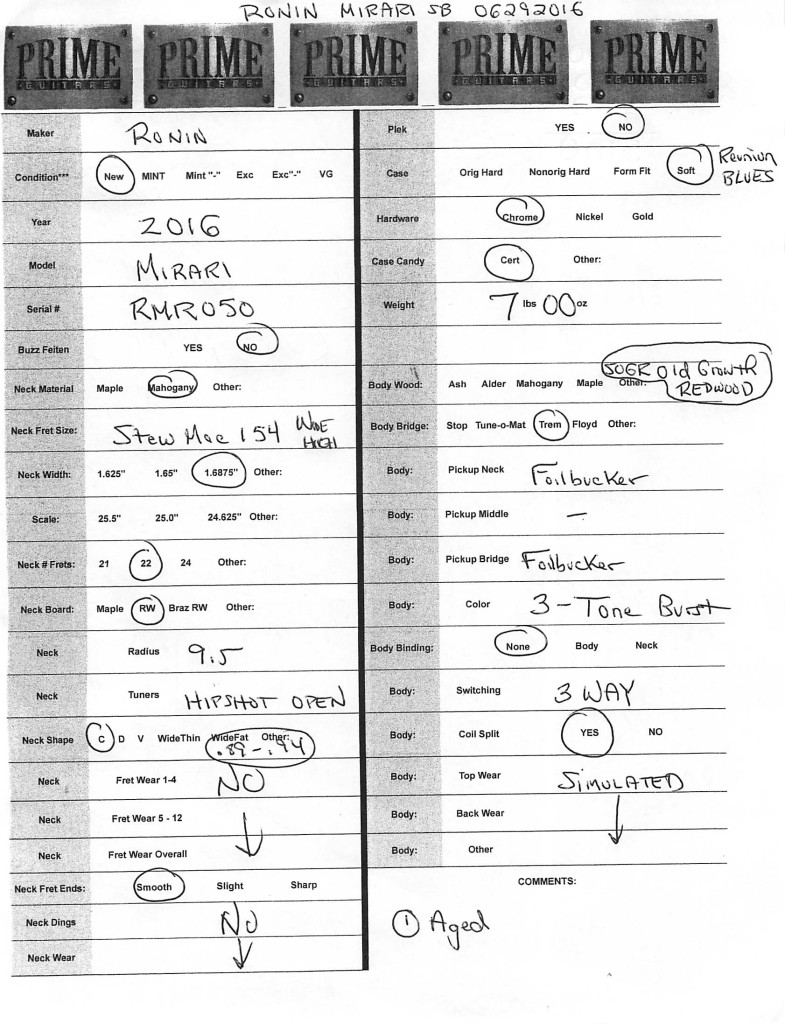 RONIN MIRARI SB 06292016
PRIME GUITARS PRIME GUITARS PRIME GUITARS PRIME GUITARS PRIME GUITARS
Maker RONIN
Condition*** New MINT Mint "-" Exc Exc"-" VG
Year 2016
Model MIRARI
Serial # RMR050
Buzz Feiten YES NO
Neck Material Maple Mahogany Other:
Neck Fret Size: Stew Mac 154 WIDE HIGH
Neck Width: 1.625" 1.65" 1.6875" Other:
Scale: 25.5" 25.0" 24.625" Other:
Neck # Frets: 21 22 24 Other:
Neck Board: Maple RW Braz RW Other:
Neck Radius 9.5
Neck Tuners HIPSHOT OPEN
Neck Shape C D V WideThin WideFat Other: .89-.94
Neck Fret Wear 1-4 NO
Neck Fret Wear 5 - 12
Neck Fret Wear Overall
Neck Fret Ends: Smooth Slight Sharp
Neck Dings NO
Neck Wear
Plek YES NO
Case Orig Hard Nonorig Hard Form Fit Soft Reunion BLUES
Hardware Chrome Nickel Gold
Case Candy Cert Other:
Weight 7 lbs 00 oz
Body Wood: Ash Alder Mahogany Maple Other: SOGR Old Growth REDWOOD
Body Bridge: Stop Tune-o-Mat Trem Floyd Other:
Body: Pickup Neck Foilbucker
Body: Pickup Middle —
Body: Pickup Bridge Foilbucker
Body: Color 3-Tone Burst
Body Binding: None Body Neck
Body: Switching 3 WAY
Body: Coil Split YES NO
Body: Top Wear SIMULATED
Body: Back Wear
Body: Other
COMMENTS:
① Aged